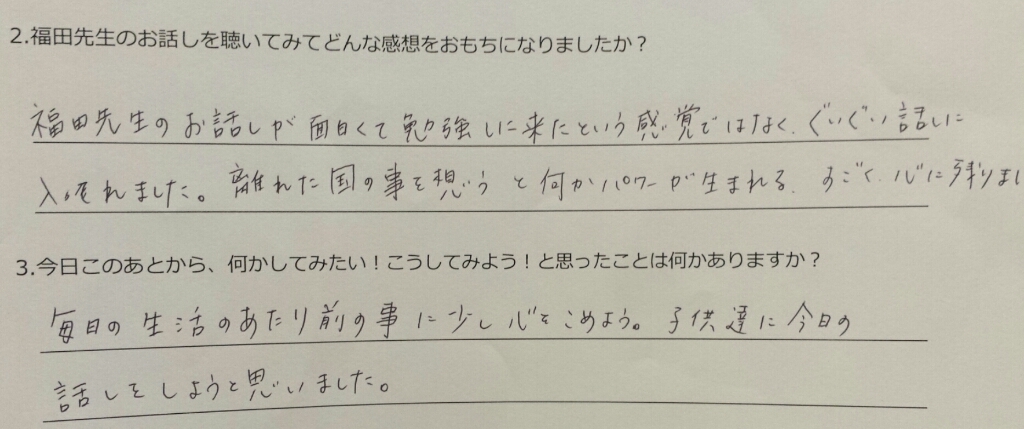 2.福田先生のお話しを聴いてみてどんな感想をおもちになりましたか？
福田先生のお話しが面白くて勉強しに来たという感覚ではなく、ぐいぐい話しに
入れました。離れた国の事を想うと何かパワーが生まれる、すごく、心に残りまし
3.今日このあとから、何かしてみたい！こうしてみよう！と思ったことは何かありますか？
毎日の生活のあたり前の事に少し心をこめよう。子供達に今日の
話しをしようと思いました。